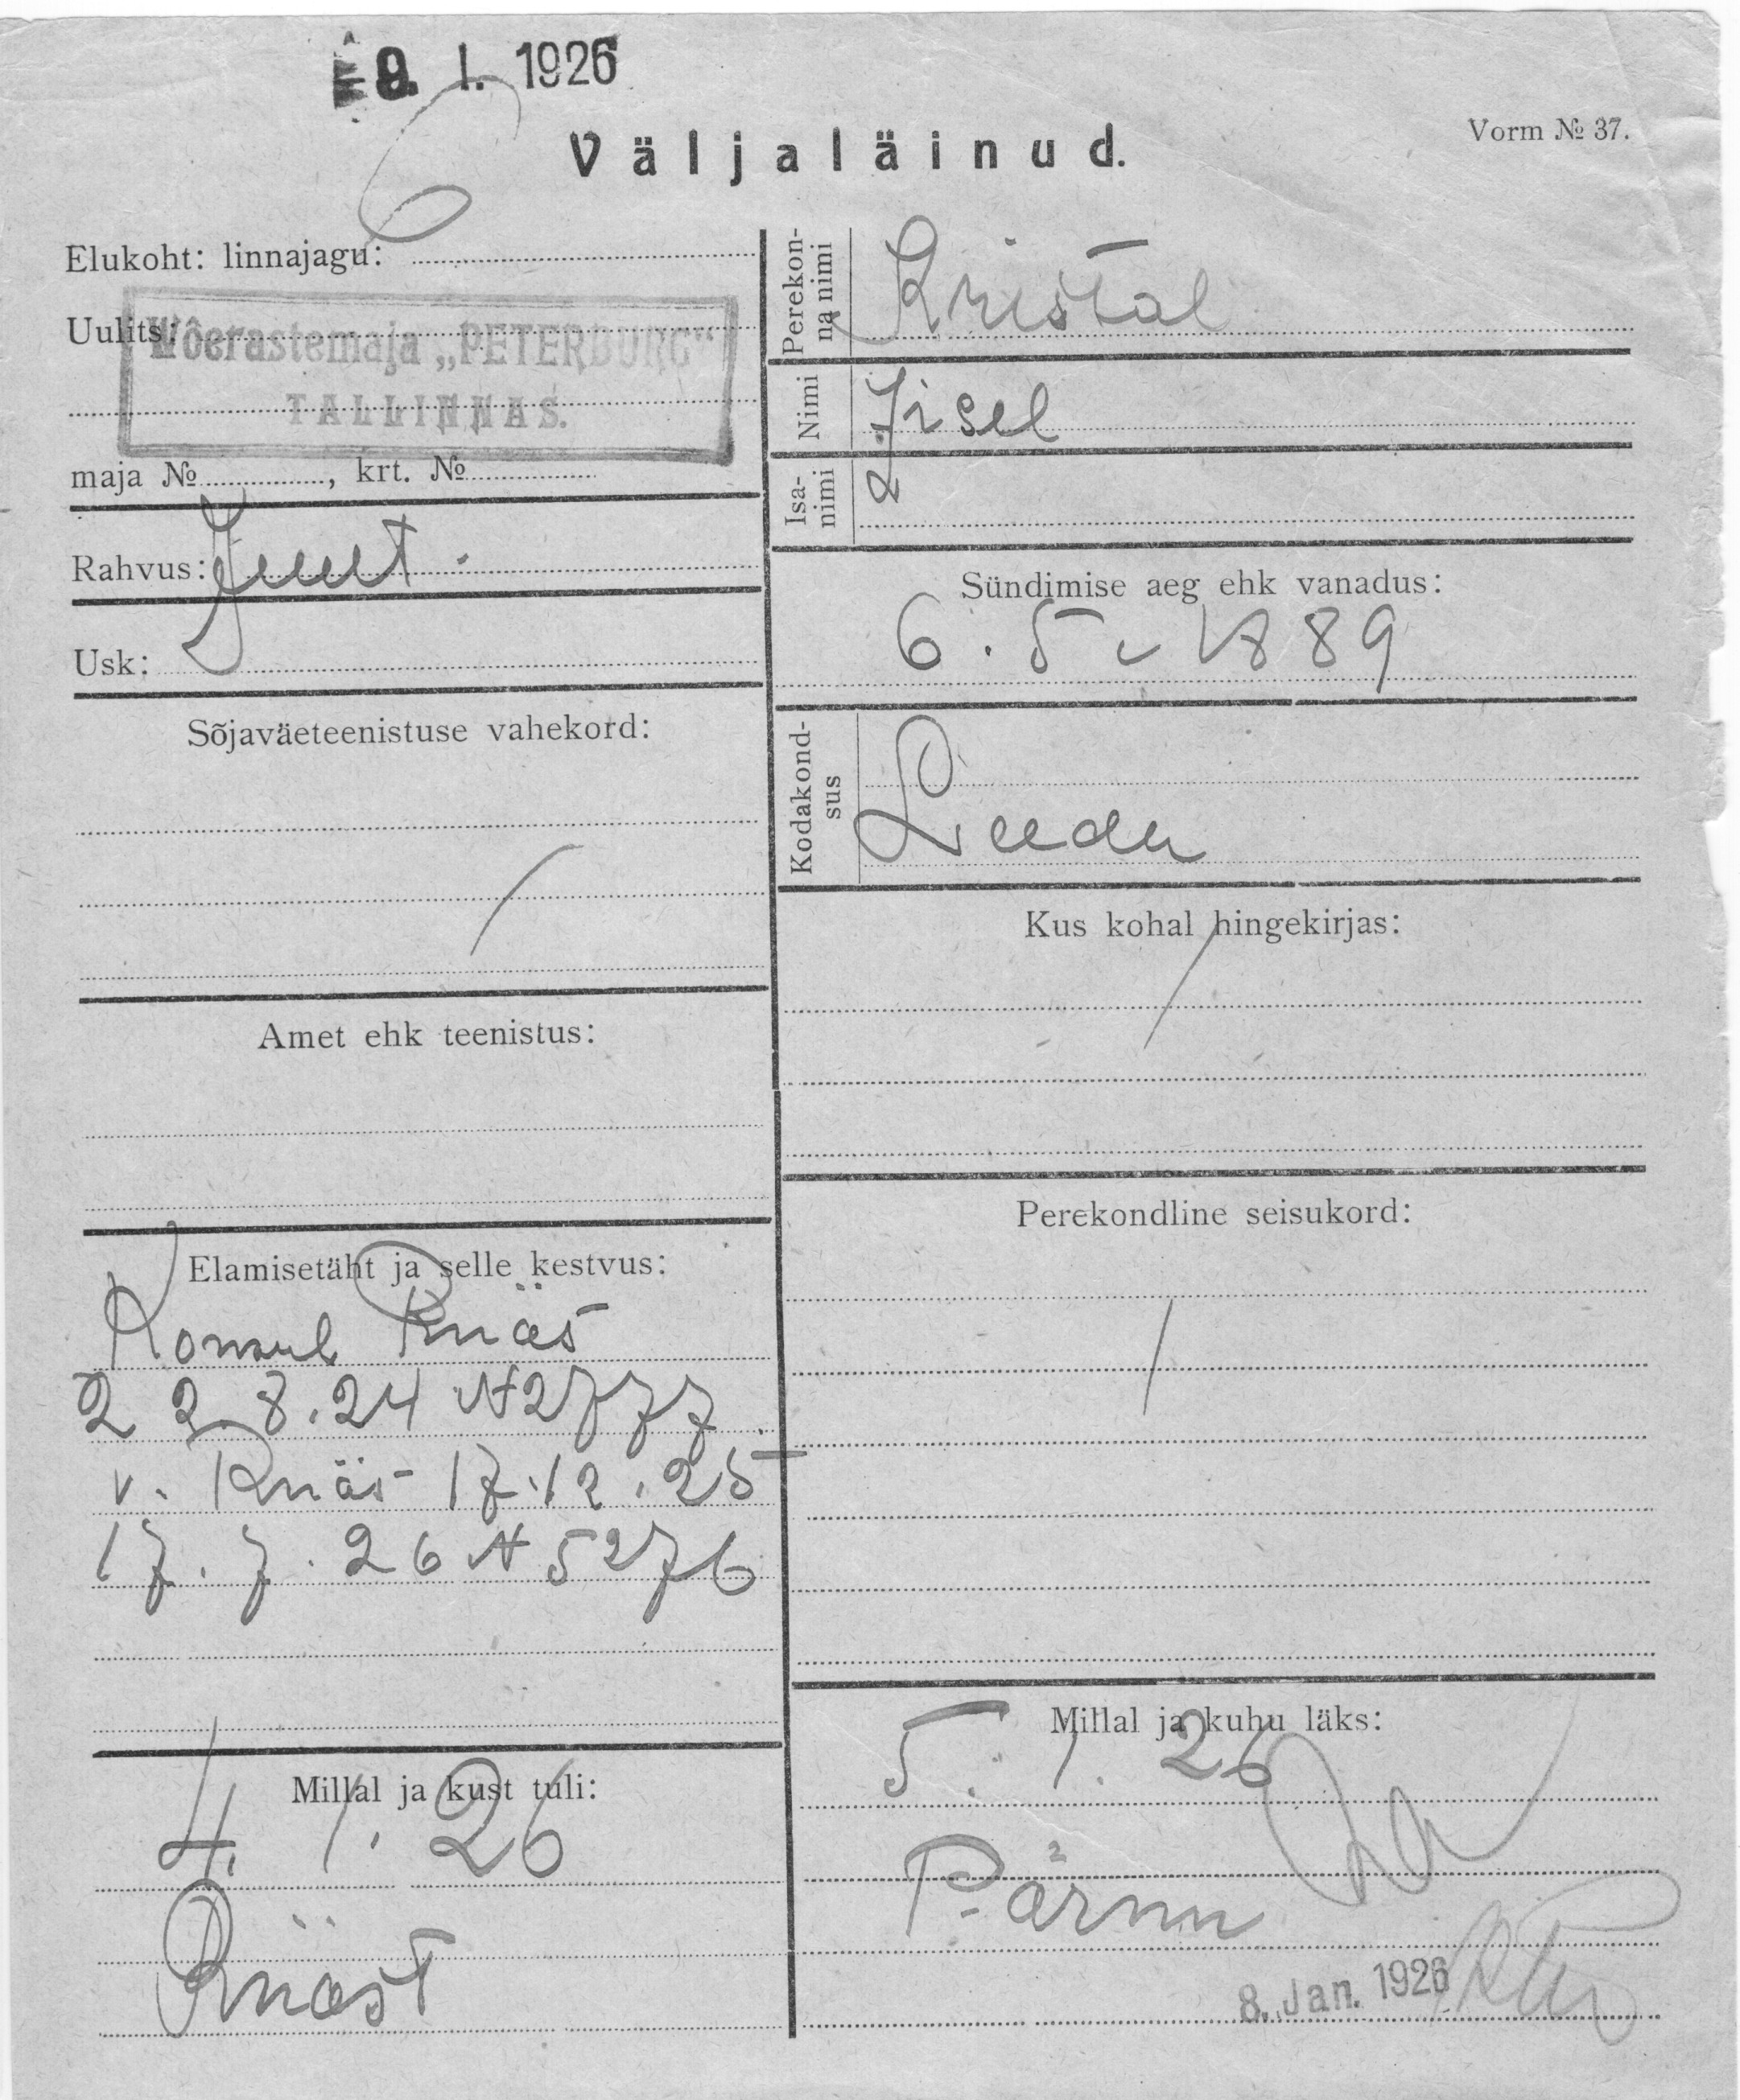 9. I. 1926
6
Väljaläinud.
Vorm № 37.
Elukoht: linnajagu:
Uulits:
Võerastemaja „PETERBURG“
TALLINNAS.
maja №, krt. №
Rahvus: Juut.
Usk:
Sõjaväeteenistuse vahekord:
Amet ehk teenistus:
Elamisetäht ja selle kestvus:
Konsul Riias
22.8.24 N 2777
v. Riias 17.12.25
17.7.26 N 5276
Millal ja kust tuli:
4. 1. 26
Riiast
Perekon-
na nimi
Kristal
Nimi
Isa-
nimi
Sündimise aeg ehk vanadus:
6. 5. 1889
Kodakond-
sus
Leedu
Kus kohal hingekirjas:
Perekondline seisukord:
Millal ja kuhu läks:
5. 1. 26
Pärnu
8. Jan. 1926